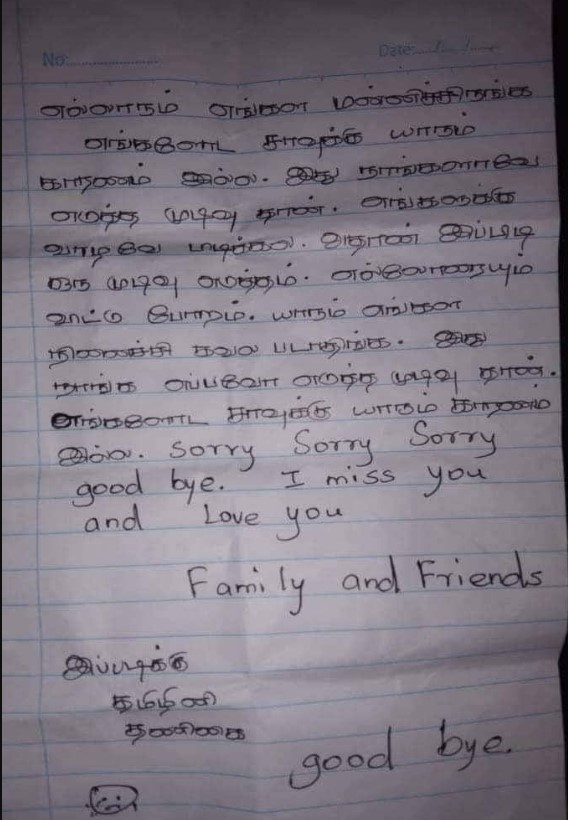 No:............... Date:..../..../......
எல்லாரும் எங்கள மன்னிச்சிருங்க
எங்களோட சாவுக்கு யாரும்
காரணம் இல்ல. இது நாங்களாவே
எடுத்த முடிவு தான். எங்களுக்கு
வாழவே புடிக்கல. அதான் இப்படி
ஒரு முடிவு எடுத்தம். எல்லோரையும்
வாட்டு போறம். யாரும் எங்கள
நினைச்சி கவல படாதிங்க. இது
நாங்க எப்பவோ எடுத்த முடிவு தான்.
எங்களோட சாவுக்கு யாரும் காரணம்
இல்ல. Sorry Sorry Sorry
good bye. I miss you
and Love you
Family and Friends
இப்படிக்கு
தமிழினி
தணிகை
good bye.